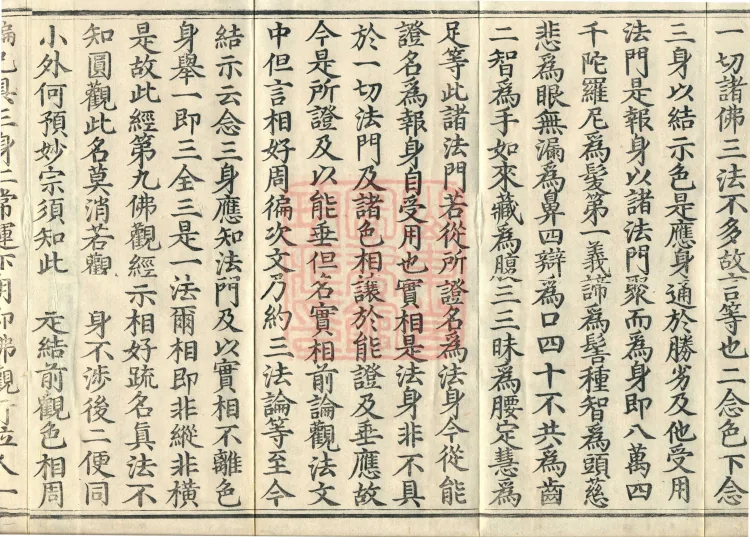 一切諸佛三法不多故言等也二念色下念
三身以結示色是應身通於勝劣及他受用
法門是報身以諸法門聚而為身即八萬四
千陀羅尼為髮第一義諦為髻種智為頭慈
悲為眼無漏為鼻四辯為口四十不共為齒
二智為手如來藏為腹三三昧為腰定慧為
足等此諸法門若從所證名為法身今從能
證名為報身自受用也實相是法身非不具
於一切法門及諸色相讓於能證及垂應故
今是所證及以能垂但名實相前論觀法文
中但言相好周徧次文乃約三法論等至今
結示云念三身應知法門及以實相不離色
身舉一即三全三是一法爾相即非縱非橫
是故此經第九佛觀經示相好疏名真法不
知圓觀此名莫消若觀 身不涉後二便同
小外何預妙宗須知此 㝎結前觀色相周
徧已具三身二常運下明即佛觀行